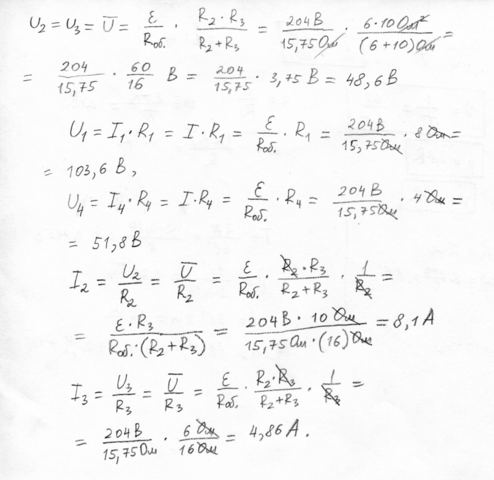 U₂ = U₃ = U̅ = ℰ/Rоб. · R₂·R₃/(R₂+R₃) = 204В/15,75Ом · 6·10Ом²/(6+10)Ом =
= 204/15,75 · 60/16 В = 204/15,75 · 3,75В = 48,6В
U₁ = I₁·R₁ = I·R₁ = ℰ/Rоб. · R₁ = 204В/15,75Ом · 8Ом =
= 103,6В,
U₄ = I₄·R₄ = I·R₄ = ℰ/Rоб. · R₄ = 204В/15,75Ом · 4Ом =
= 51,8В
I₂ = U₂/R₂ = U̅/R₂ = ℰ/Rоб. · R₂·R₃/(R₂+R₃) · 1/R₂ =
= ℰ·R₃/(Rоб.·(R₂+R₃)) = 204В·10Ом/(15,75Ом·(16)Ом) = 8,1А
I₃ = U₃/R₃ = U̅/R₃ = ℰ/Rоб. · R₂·R₃/(R₂+R₃) · 1/R₃ =
= 204В/15,75Ом · 6Ом/16Ом = 4,86А.